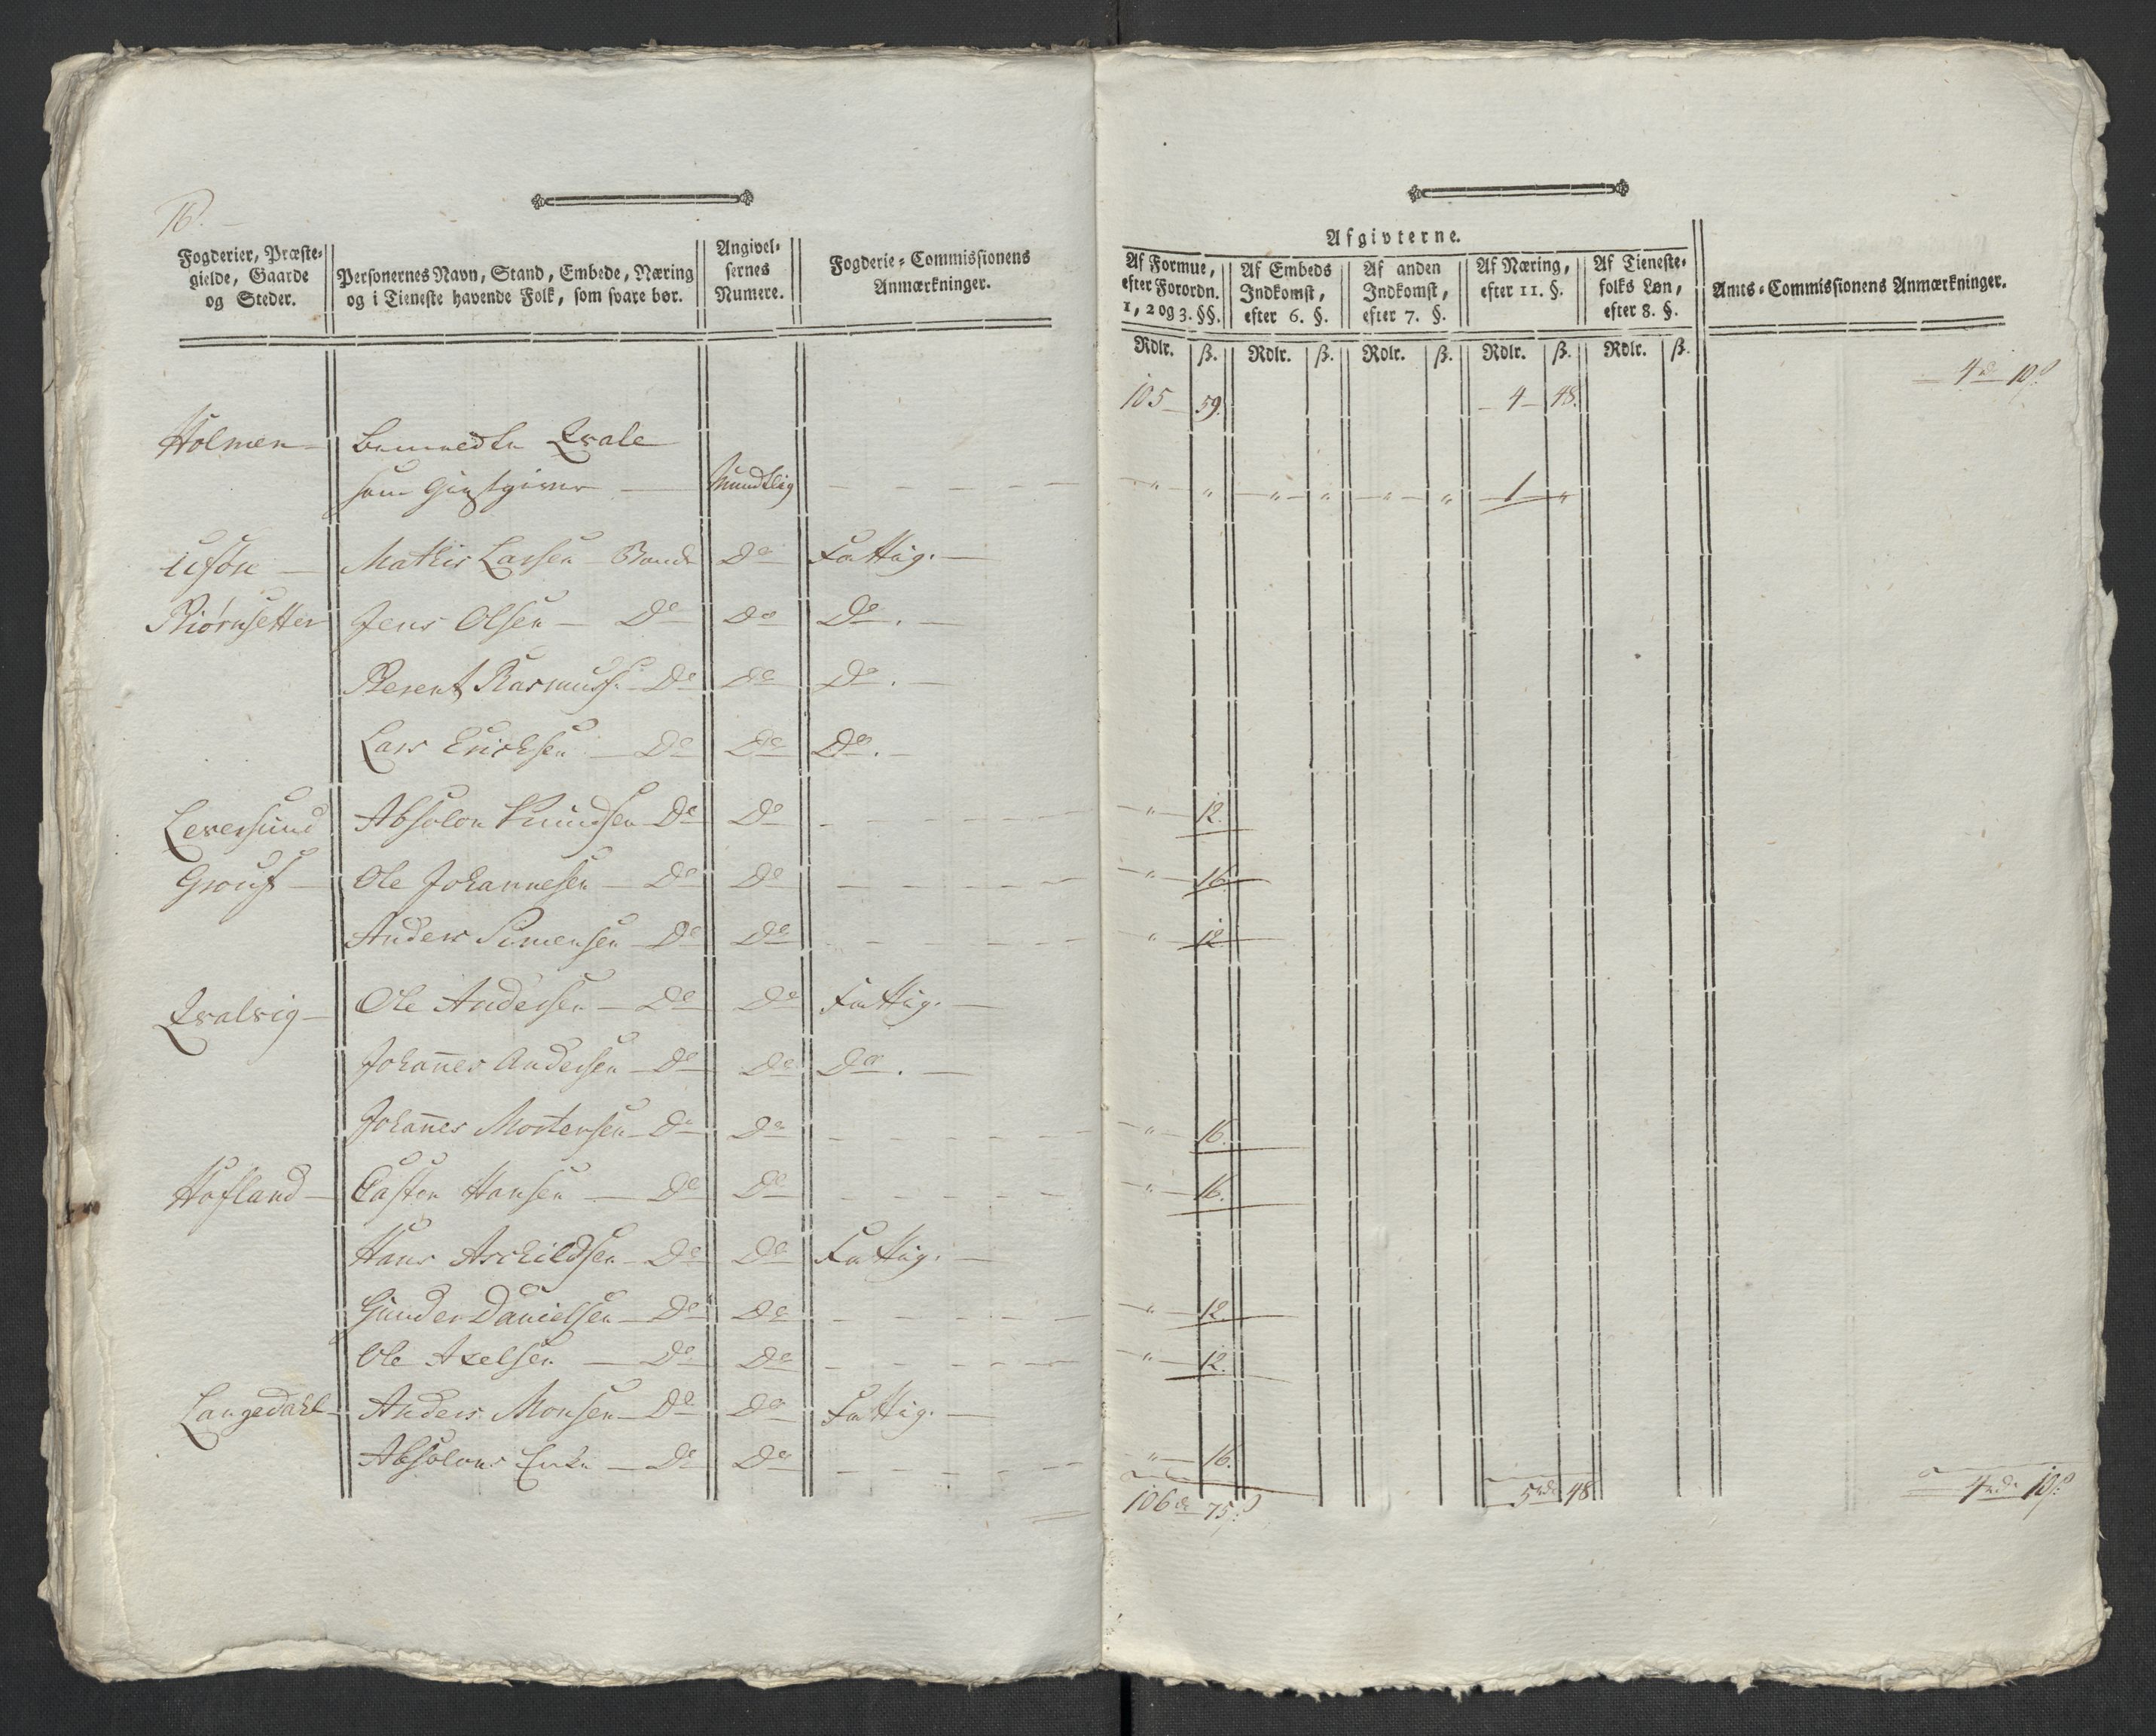 16.
Fogderier, Præste-
gielde, Gaarde
og Steder.
Personernes Navn, Stand, Embede, Næring
og i Tieneste havende Folk, som svare bør.
Angivel-
sernes
Numere.
Fogderie-Commissionens
Anmærkninger.
Afgivterne.
Af Formue,
efter Forordn.
1, 2 og 3. §§.
Af Embeds
Indkomst,
efter 6. §.
Af anden
Indkomst,
efter 7. §.
Af Næring,
efter 11. §.
Af Tieneste-
folks Løn,
efter 8. §.
Amts-Commissionens Anmærkninger.
Rdlr. ß. Rdlr. ß. Rdlr. ß. Rdlr. ß. Rdlr. ß.
105 59. 4 48. 4 rd 10 ß
Holmen bemeldte Qvale
som Giestgiver Mundtlig — " " " " " " 1 "
Mathis Larsen Bonde Do Fattig.
Biørnsetter Jens Olsen Do Do Do.
Berent Rasmuss. Do Do Do.
Lars Ericksen Do Do Do.
Leversund Absolon Knudsen Do Do " 12.
Ole Johannesen Do Do " 16.
Anders Simensen Do Do " 12
Qvalvig Ole Andersen Do Do Fattig.
Johañes Andersen Do Do Do.
Johañes Mortensen Do Do " 16.
Hofland Casten Hansen Do Do " 16.
Hans Aschildsen Do Do Fattig.
Gunder Danielsen Do Do " 12.
Ole Axelsen Do Do " 12.
Langedahl Anders Monsen Do Do Fattig.
Absolons Enke Do Do " 16.
106 rd 75 ß 5 rd 48 4 rd 10 ß